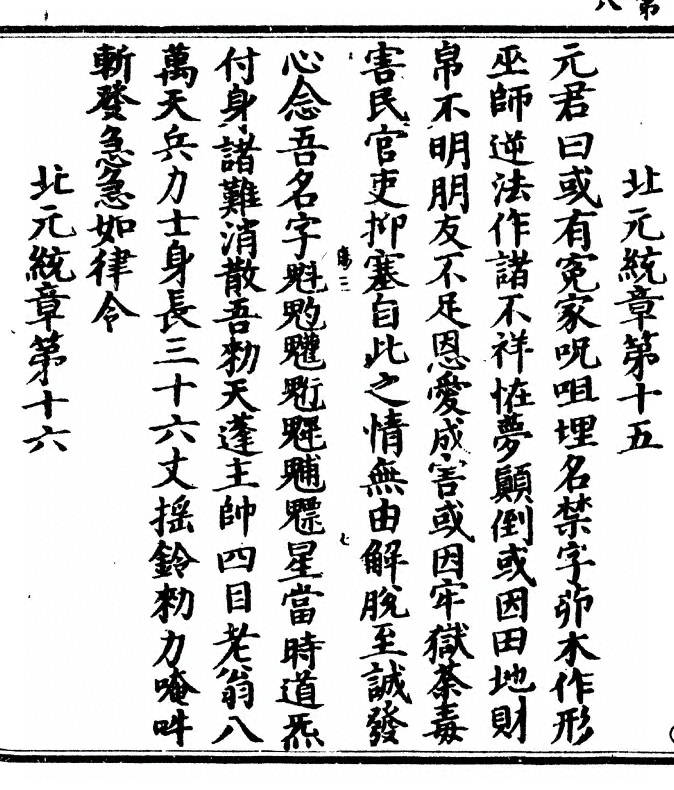 北元統章第十五
元君曰或有冤家呪咀埋名禁字茆木作形
巫師逆法作諸不祥恠夢顛倒或因田地財
帛不明朋友不足恩愛成害或因牢獄荼毒
害民官吏抑塞自此之情無由解脫至誠發
心念吾名字魁䰢魓魒星當時道炁
付身諸難消散吾勑天蓬主帥四目老翁八
萬天兵力士身長三十六丈搖鈴勑力唵吽
斬發急急如律令
北元統章第十六